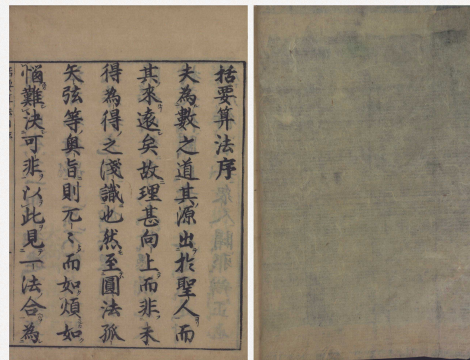 括要算法序
夫為數之道其源出於聖人而
其来遠矣故理甚向上而非未
得為得之淺識也然至圓法弧
矢弦等奧旨則兀〻而如煩如
惱難決可非以此見一法合為